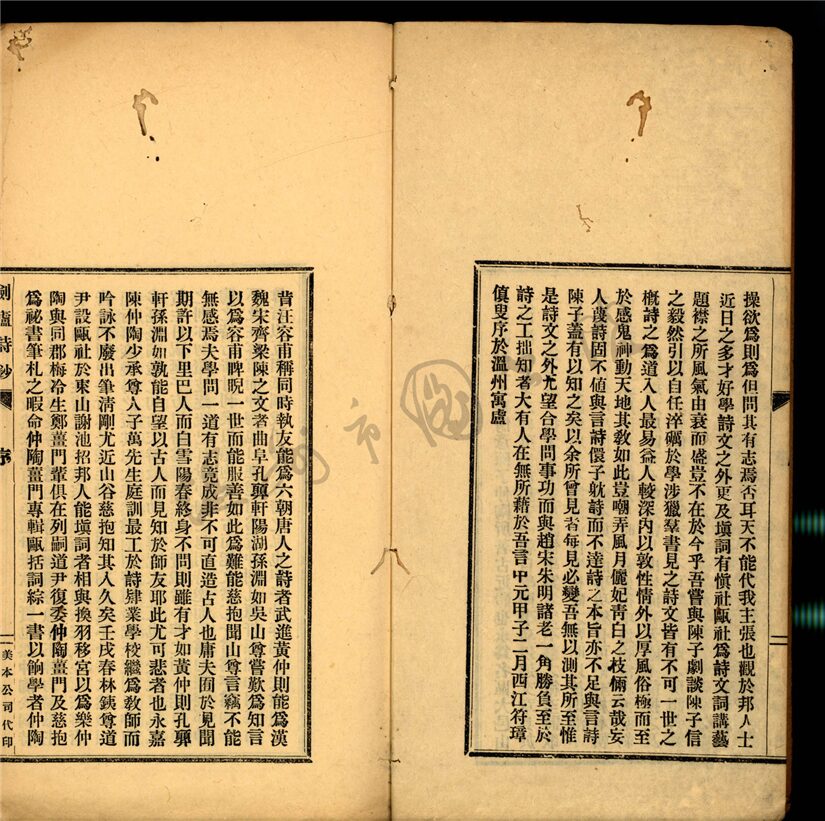 操欲爲則爲但問其有志焉否耳天不能代我主張也觀於邦人士
近日之多才好學詩文之外更及塡詞有愼社甌社爲詩文詞講藝
題襟之所風氣由衰而盛豈不在於今乎吾嘗與陳子劇談陳子信
之毅然引以自任淬礪於學涉獵羣書見之詩文皆有不可一世之
槪詩之爲道入人最易益人較深內以敦性情外以厚風俗極而至
於感鬼神動天地其敎如此豈嘲弄風月儷妃靑白之枝倆云哉妄
人蔑詩固不値與言詩儇子躭詩而不達詩之本旨亦不足與言詩
陳子蓋有以知之矣以余所曾見者每見必變吾無以測其所至惟
是詩文之外尤望合學問事功而與趙宋朱明諸老一角勝負至於
詩之工拙知者大有人在無所藉於吾言中元甲子二月西江符璋
傎叟序於溫州寓廬
昔汪容甫稱同時執友能爲六朝唐人之詩者武進黃仲則能爲漢
魏宋齊梁陳之文者曲阜孔顨軒陽湖孫淵如吳山尊嘗歎爲知言
以爲容甫睥睨一世而能服善如此爲難能慈抱聞山尊言竊不能
無感焉夫學問一道有志竟成非不可直造古人也庸夫囿於見聞
期許以下里巴人而白雪陽春終身不問則雖有才如黃仲則孔顨
軒孫淵如孰能自望以古人而見知於師友耶此尤可悲者也永嘉
陳仲陶少承尊人子萬先生庭訓最工於詩肄業學校繼爲敎師而
吟詠不廢出筆淸剛尤近山谷慈抱知其入久矣壬戌春林鐵尊道
尹設甌社於東山謝池招邦人能塡詞者相與換羽移宮以爲樂仲
陶與同郡梅冷生鄭薑門輩俱在列嗣道尹復委仲陶薑門及慈抱
爲祕書筆札之暇命仲陶薑門專輯甌括詞綜一書以餉學者仲陶
劍廬詩鈔
序
一
美本公司代印